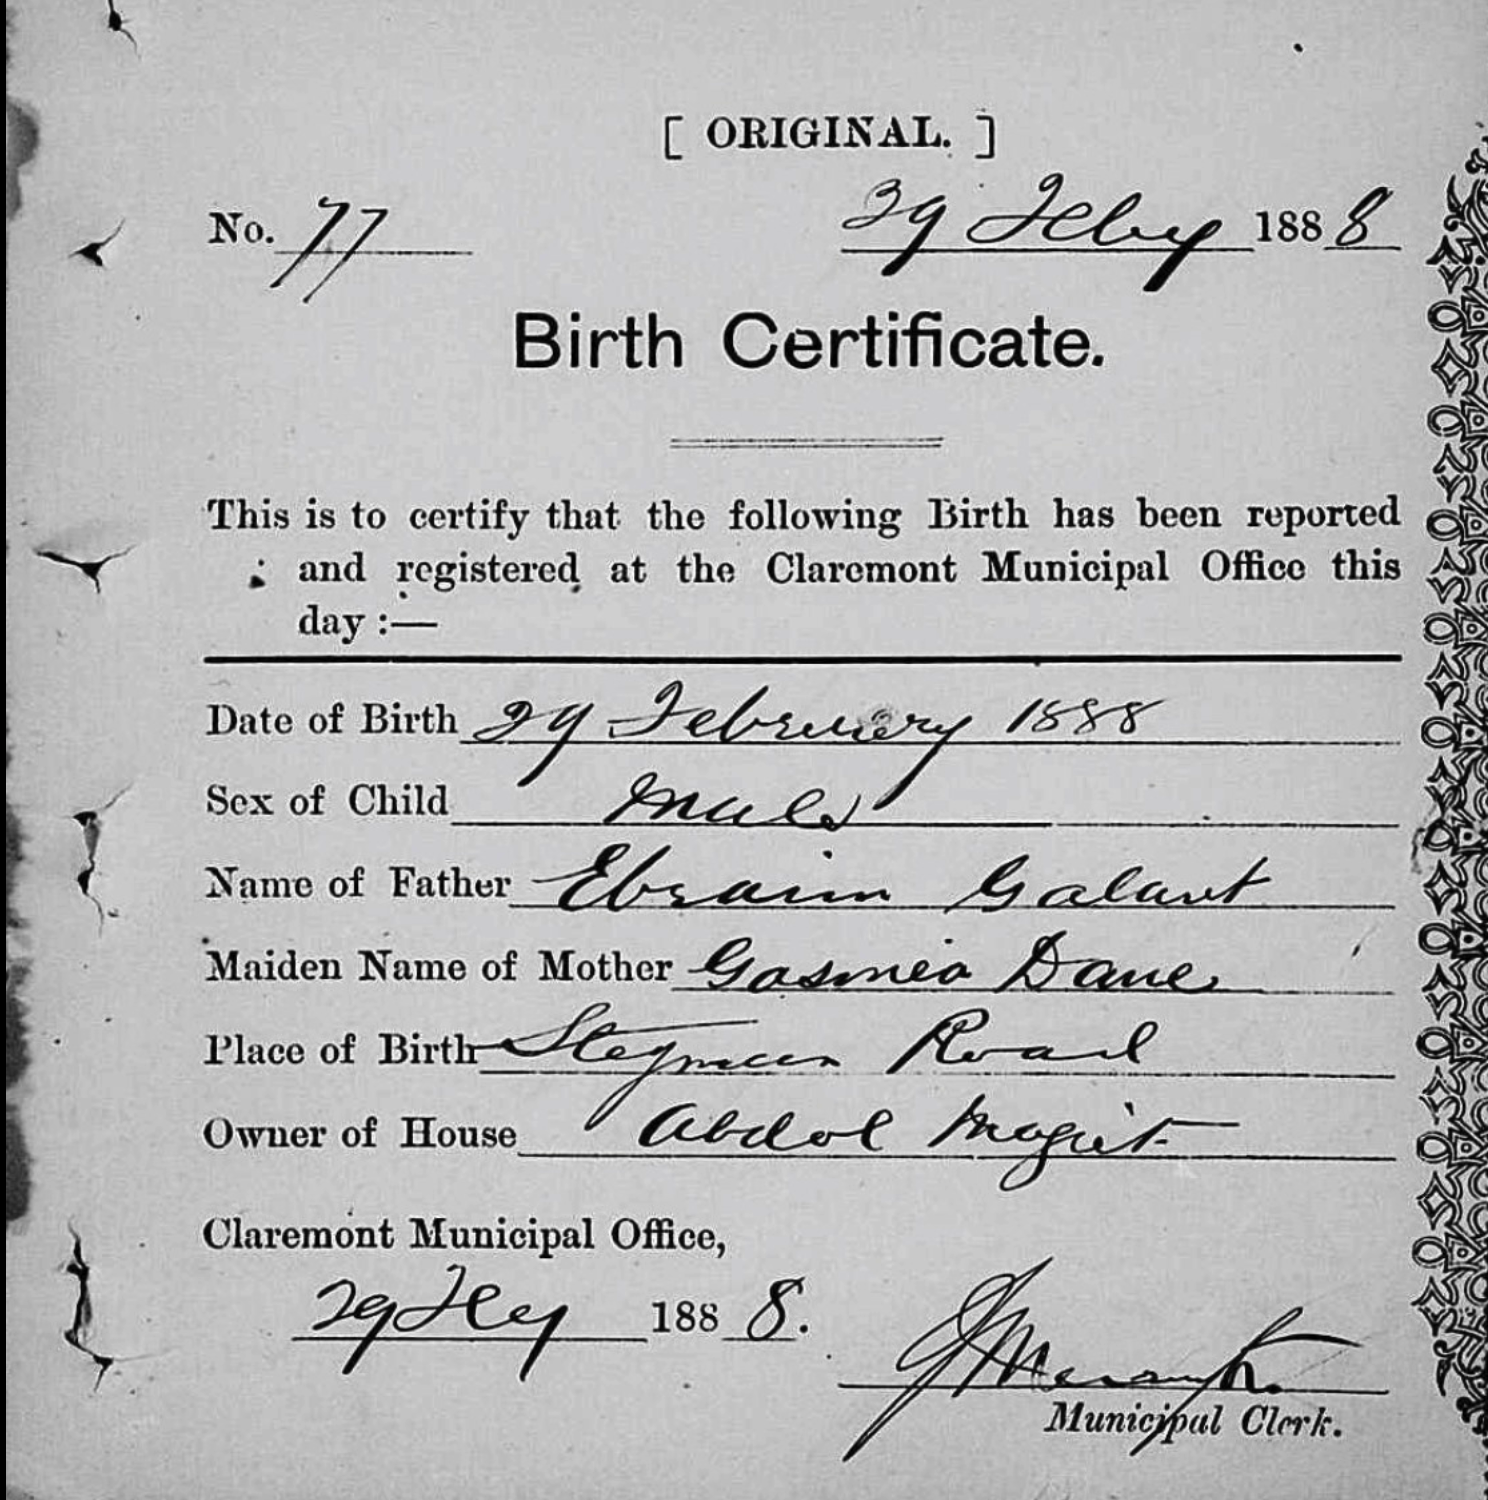 [ ORIGINAL. ]
No. 77 29 Feby 1888
Birth Certificate.
This is to certify that the following Birth has been reported
and registered at the Claremont Municipal Office this
day :—
Date of Birth 29 February 1888
Sex of Child Male
Name of Father Ebraim Galant
Maiden Name of Mother Gasmea Dane
Place of Birth Stegman Road
Owner of House Abdol Magiet
Claremont Municipal Office,
29 Feby 1888.
Municipal Clerk.